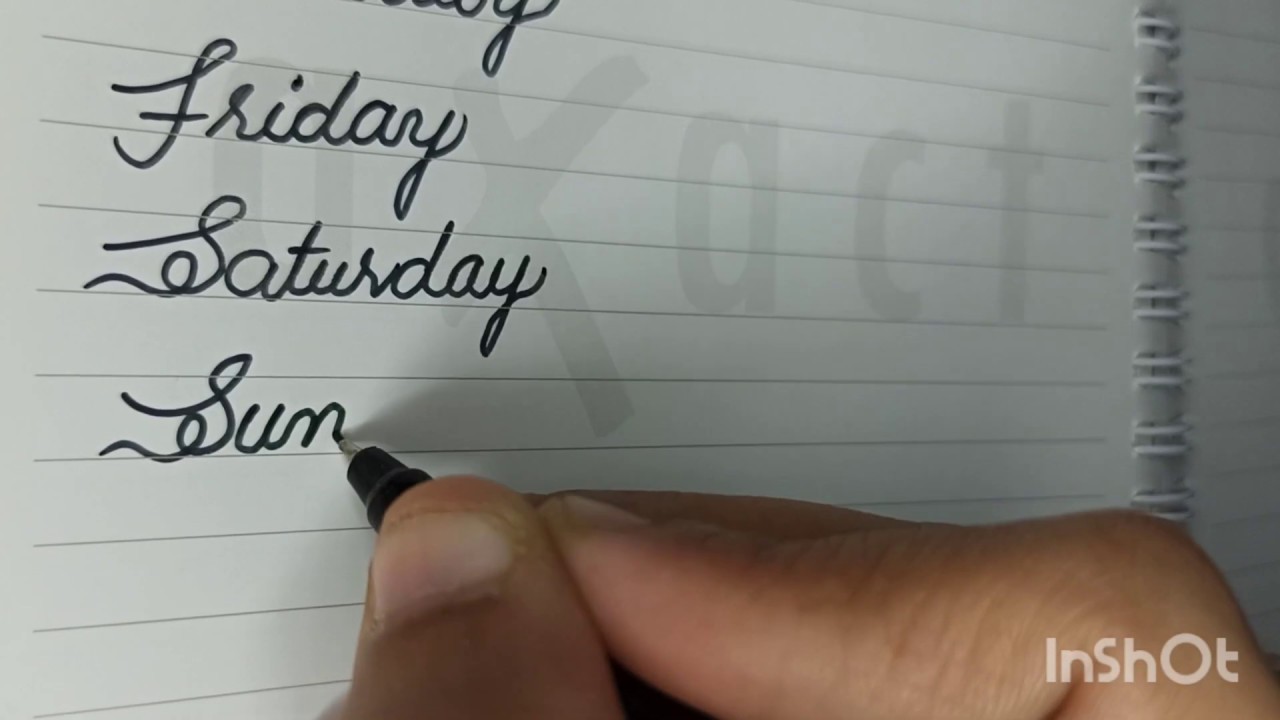 Friday
Saturday
Sun
InShOt